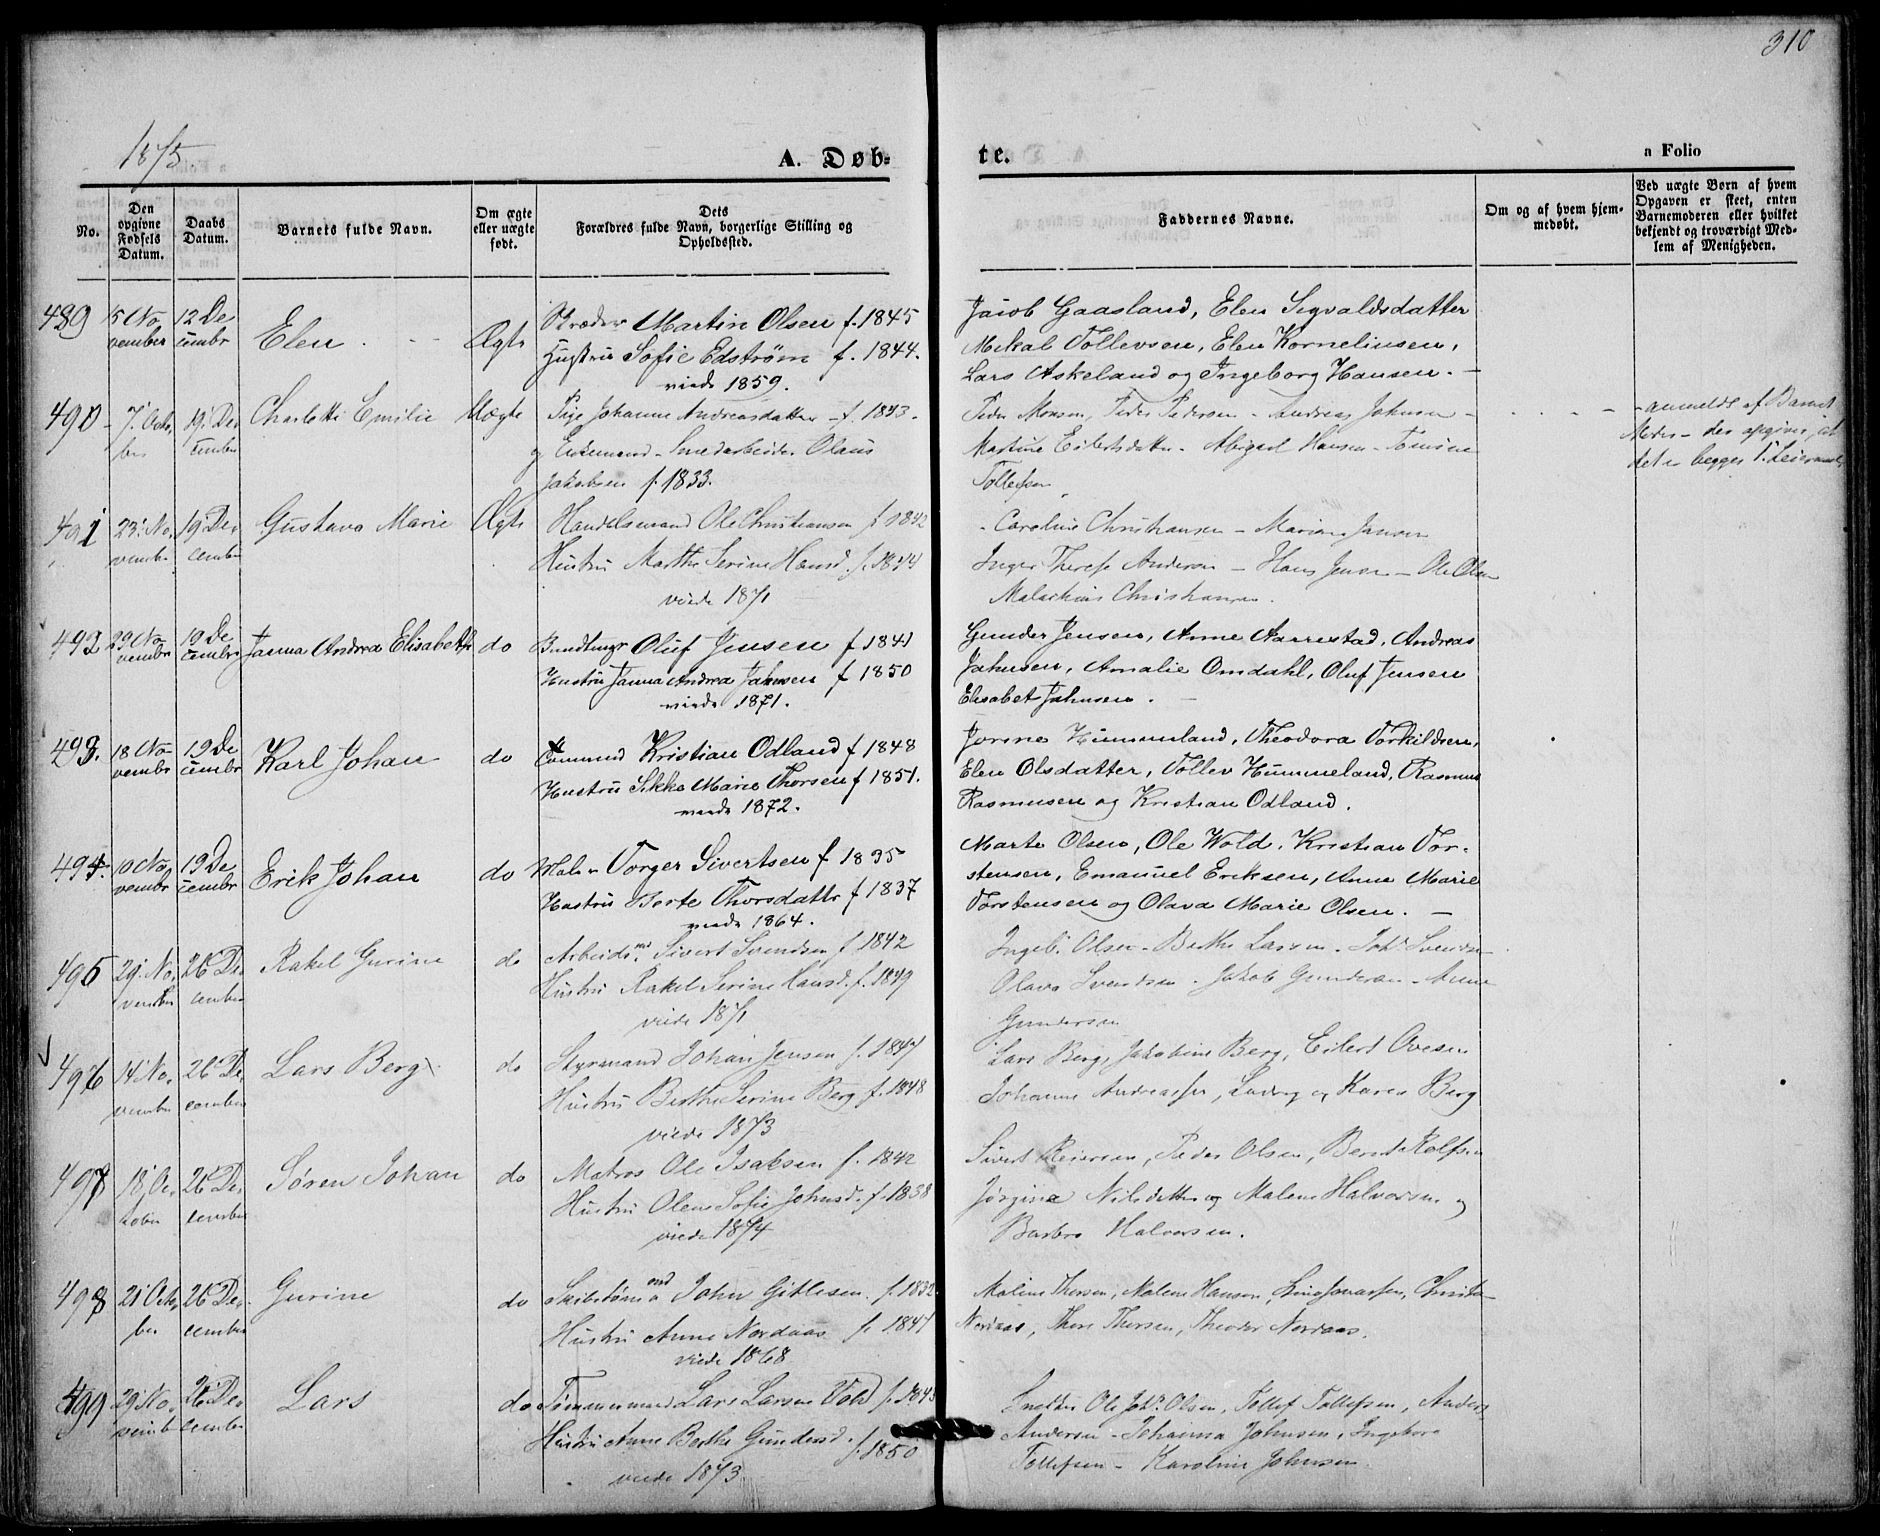 310
1875
A. Døb-
te.
a Folio
No.
Den opgivne Fødsels Datum.
Daabs Datum.
Barnets fulde Navn.
Om ægte eller uægte født.
Dets Forældres fulde Navn, borgerlige Stilling og Opholdssted.
Faddernes Navne.
Om og af hvem hjemmedøbt.
Ved uægte Børn af hvem Opgaven er skeet, enten Barnemoderen eller hvilket bekjendt og troværdigt Medlem af Menigheden.
489 15 No 12 De Skræder Martin Olsen f. 1845 Jacob Gaasland, Elen Sigvaldsdatter
vember cembr Elen Ægte Hustru Sofie Edstrøm f. 1844. Mikal Tollevsen, Elen Kornelinsen,
viede 1859. Lars Askeland og Ingeborg Hansen.
490 7. Octo 19. De Charlotte Emilie Uægte Pige Johanne Andreasdatter f. 1843. Peder Monsen, Peder Pedersen - Andreas Johnsen - anmeldt af Barnets
ber cember og Enkemand - Smedarbeider Olaus Martine Eilertsdatter - Abigael Hansen - Tomine Moder - der opgiver, at
Jakobsen f. 1833. Tollefsen det er begges 1. Leiermaal
491 23. No 19 De Gustava Marie Ægte Handelsmand Ole Christiansen f 1842 Caroline Christiansen - Marion Jansen
vember cember Hustru Marthe Serine Hansd. f. 1844 Inger Therese Andersen - Hans Jensen - Ole Olsen
viede 1871 Malachias Christiansen.
492 29 No 19 De Janna Andrea Elisabeth do Bundtmgr Oluf Jensen f 1841 Gunder Jensen, Anne Aarrestad, Andreas
vembr cembr Hustru Janna Andrea Jahnsen f 1850 Jahnsen, Amalie Omdahl, Oluf Jensen
viede 1871. Elisabet Jahnsen.
493. 18 No 19 De Karl Johan do Tømmd Kristian Odland f 1848 Jorine Hummeland, Theodora Torkildsen,
vembr cembr Hustru Sikke Marie Thorsen f 1851. Elen Olsdatter, Tollev Hummeland, Rasmus
viede 1872. Rasmusen og Kristian Odland.
494. 10 No 19 De Erik Johan do Maler Torger Sivertsen f 1835 Marte Olsen, Ole Wold, Kristian Tor-
vembr cembr Hustru Berte Thorsdattr f 1837 stensen, Emanuel Eriksen, Anne Marie
viede 1864. Torstensen og Olava Marie Olsen.
495 29. No 26 De Rakel Gurine do Arbeidsmd Sivert Svendsen f. 1842 Ingeb. Olsen - Berthe Larsen - Johs Svendsen
vember cember Hustru Rakel Serine Hansd. f. 1849 Olava Svendsen - Jakob Gundersen - Anne
viede 1871 Gundersen
496 14 No 26 De Lars Berg do Styrmand Johan Jensen f. 1847 Lars Berg, Jakobine Berg, Eilert Ovesen
vember cember Hustru Berthe Serine Berg f. 1848 Johanne Andreassen, Ludvig og Karen Berg
viede 1873
497 18 Oc 26 De Søren Johan do Matros Ole Isaksen f. 1842 Sivert Reiersen, Peder Olsen, Bernt Rolfsen
tober cember Hustru Olene Sofie Johnsd. f. 1838 Jørgine Nilsdatter og Malene Halvorsen og
viede 1874 Barbro Halvorsen.
498 21 Octo 26 De Gurine do Skibstømmand John Gitlesen f. 1832 Maline Thorsen, Malene Hansen, Line Jonassen, Christen
ber cember Hustru Anne Nordaas f. 1847 Nordaas, Thore Thorsen, Theodor Nordaas.
viede 1868
499 29 No 26 De Lars do Tømmermand Lars Larsen Vold f. 1843 Snedker Ole Johs. Olsen, Tollef Tollefsen, Anders
vemb cember Hustru Anne Berthe Gundersd. f. 1850 Andersen - Johanna Johnsen, Ingeborg
viede 1873. Tollefsen - Karoline Johnsen.